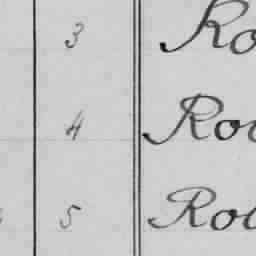 3 Ro
4 Roo
5 Roo